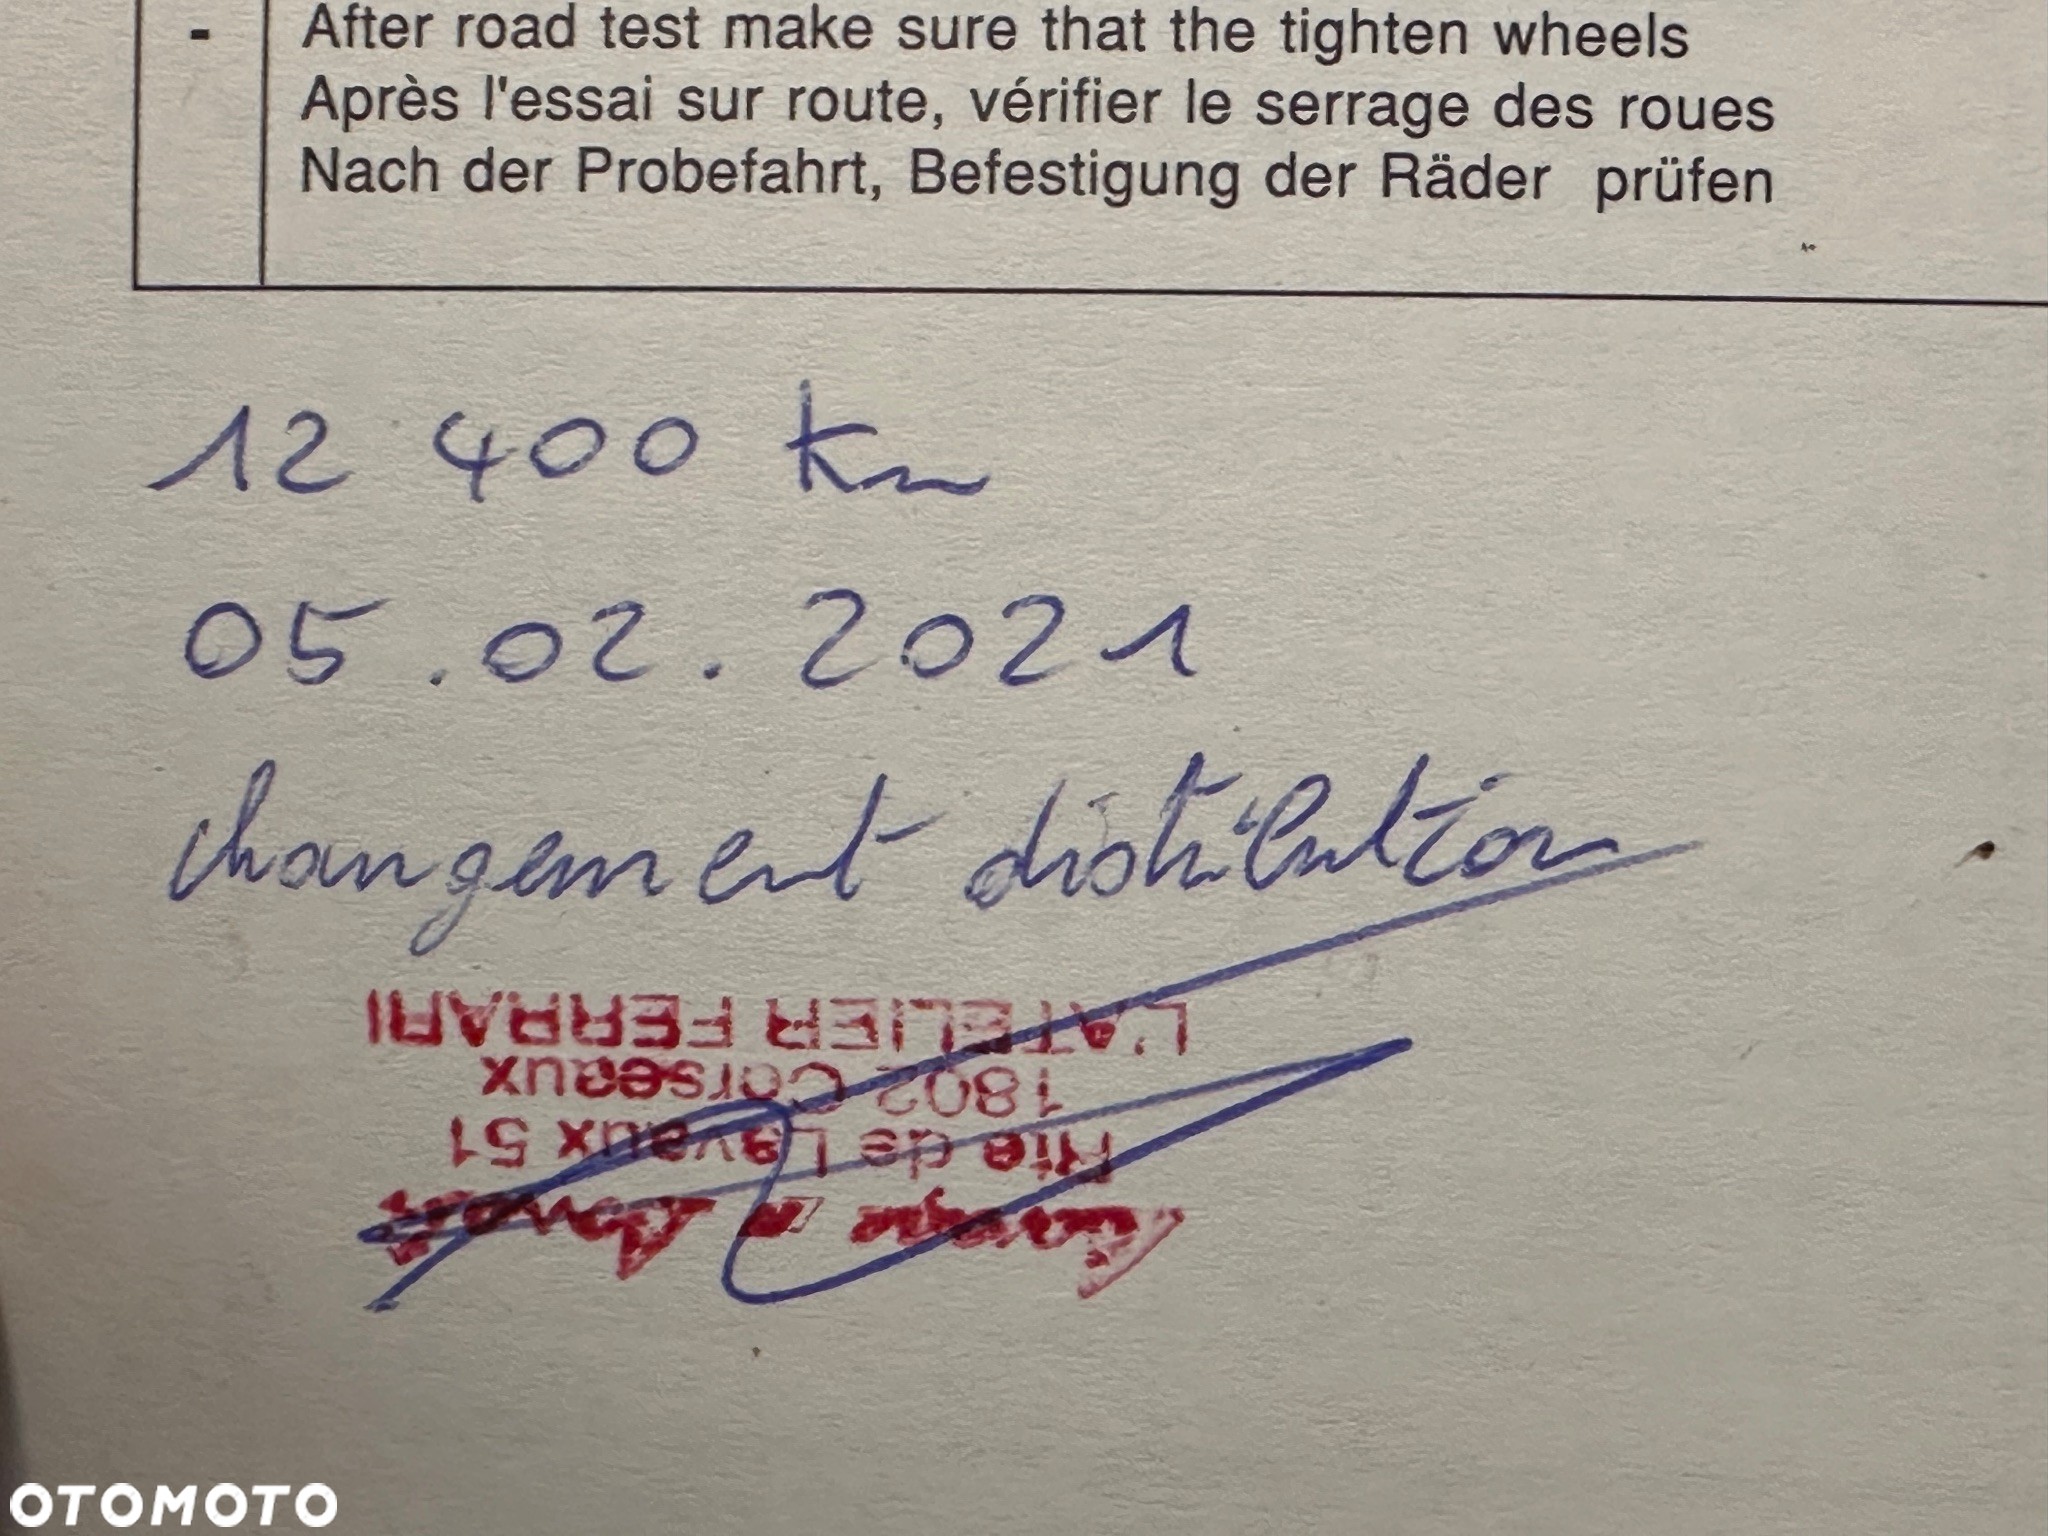 - After road test make sure that the tighten wheels
Après l'essai sur route, vérifier le serrage des roues
Nach der Probefahrt, Befestigung der Räder prüfen
12 400 km
05.02.2021
changement distribution
Rte de Lavaux 51
1802 Corseaux
L'ATELIER FERRARI
OTOMOTO